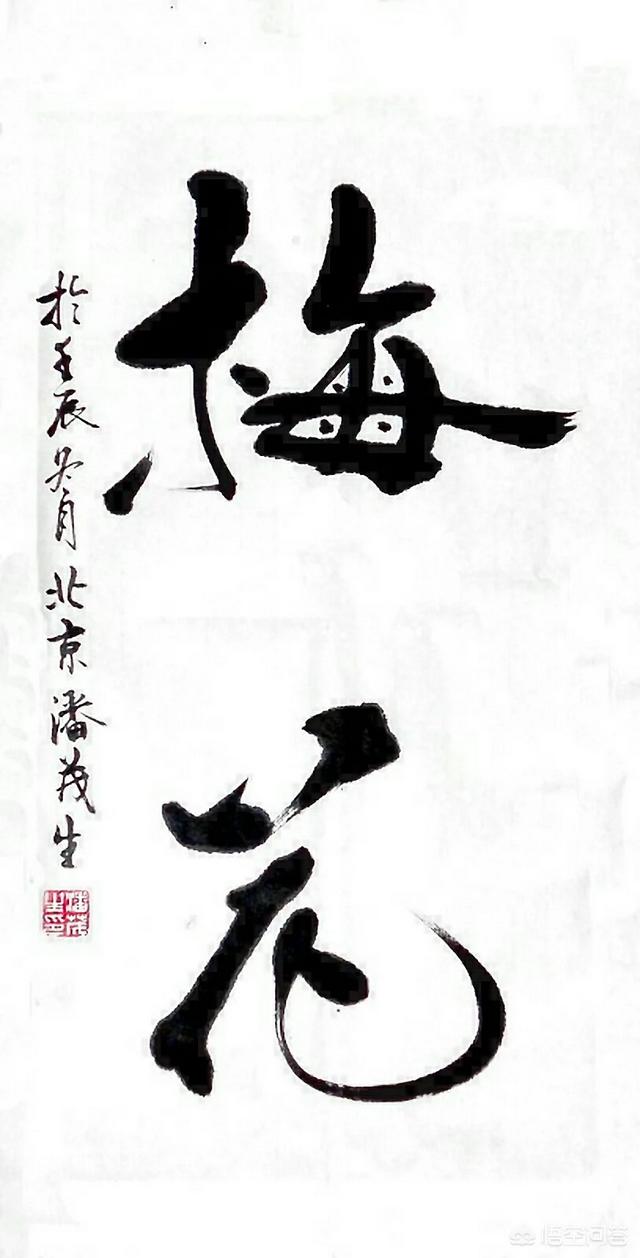 梅花
於壬辰冬月北京潘茂生
潘茂生印
悟空问答